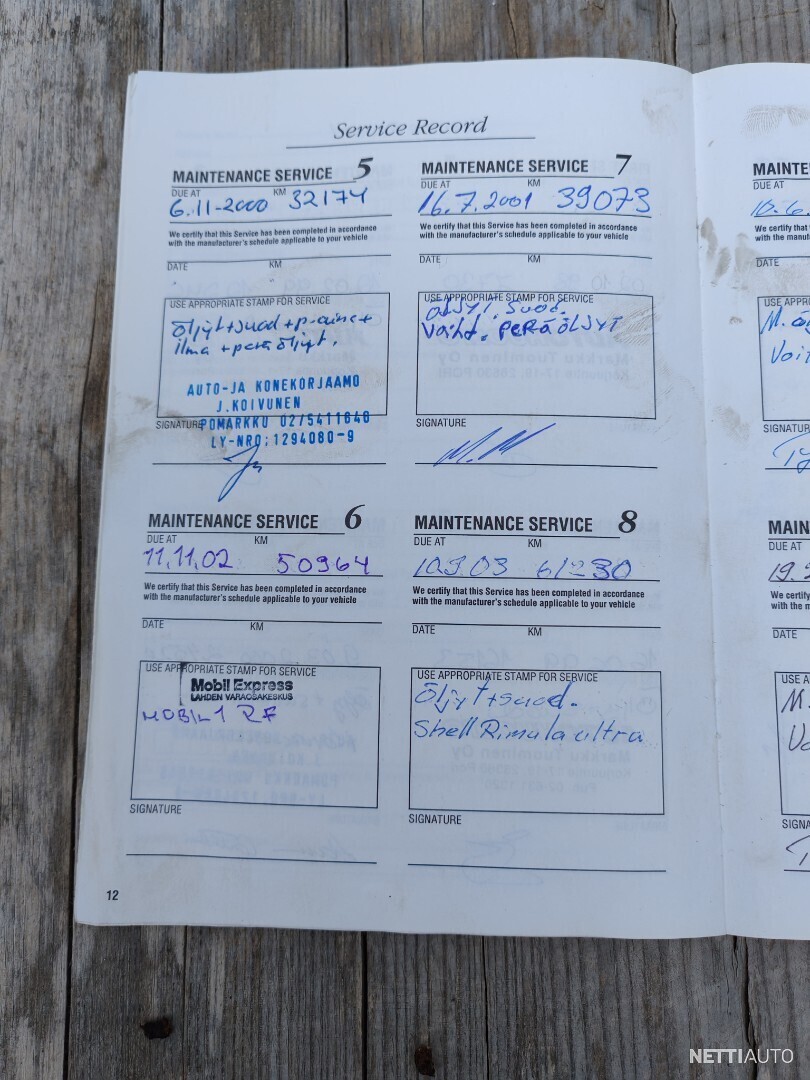 Service Record
MAINTENANCE SERVICE 5
DUE AT KM
6.11-2000 32174
We certify that this Service has been completed in accordance
with the manufacturer's schedule applicable to your vehicle
DATE KM
USE APPROPRIATE STAMP FOR SERVICE
öljyt+suod+p-aine+
ilma+perä öljyt.
AUTO-JA KONEKORJAAMO
J.KOIVUNEN
POMARKKU 02/5411640
LY-NRO;1294080-9
SIGNATURE
MAINTENANCE SERVICE 7
DUE AT KM
16.7.2001 39073
We certify that this Service has been completed in accordance
with the manufacturer's schedule applicable to your vehicle
DATE KM
USE APPROPRIATE STAMP FOR SERVICE
ÖLJYT, SUOD.
VAIHT. PERÄÖLJYT
SIGNATURE
M.M
MAINTENANCE SERVICE 6
DUE AT KM
11.11.02 50964
We certify that this Service has been completed in accordance
with the manufacturer's schedule applicable to your vehicle
DATE KM
USE APPROPRIATE STAMP FOR SERVICE
Mobil Express
LAHDEN VARAOSAKESKUS
MOBIL 1 RF
SIGNATURE
MAINTENANCE SERVICE 8
DUE AT KM
10.9.03 61230
We certify that this Service has been completed in accordance
with the manufacturer's schedule applicable to your vehicle
DATE KM
USE APPROPRIATE STAMP FOR SERVICE
Öljyt+suod.
Shell Rimula ultra
SIGNATURE
12
MAINTE
DUE AT
We certify that
with the manufa
DATE
USE APPRO
SIGNATUR
MAIN
DUE AT
19.
We certify
with the m
DATE
USE A
SIGNA
NETTIAUTO